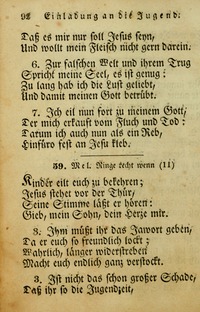 92 Einladung an die Jugend.
Daß es mir nur soll Jesus seyn,
Und wollt mein Fleisch nicht gern darein.
6. Zur falschen Welt und ihrem Trug
Spricht meine Seel, es ist genug:
Zu lang hab ich die Lust geliebt,
Und damit meinen Gott betrübt.
7. Ich eil nun fort zu meinem Gott,
Der mich erkauft vom Fluch und Tod:
Darum ich auch nun als ein Reb,
Hinfüro fest an Jesu kleb.
59. Mel. Ringe recht wenn (11)
Kinder eilt euch zu bekehren;
Jesus stehet vor der Thür,
Seine Stimme läßt er hören:
Gieb, mein Sohn, dein Herze mir.
2. Ihm müßt ihr das Jawort geben,
Da er euch so freundlich lockt;
Wahrlich, länger widerstreben
Macht euch endlich ganz verstockt.
3. Ist nicht das schon großer Schade,
Daß ihr so die Jugendzeit,